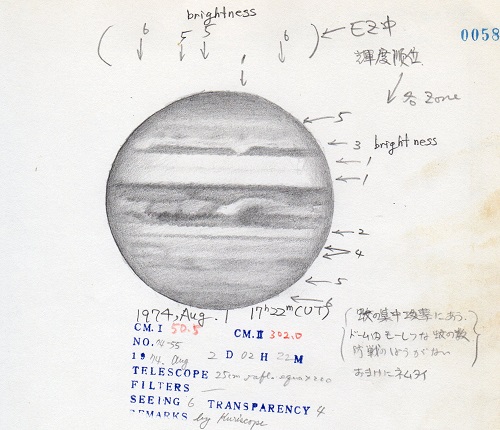 brightness
6 5 5 6
( ) ← EZ中
輝度順位
0058
1
各 Zone
5
3 brightness
1
1
2
4
5
6
1974, Aug. 1 17h22m (UT)
CM. I 50.5 CM. II 302.0
NO. 74-55
1974. Aug 2 D 02 H 22 M
TELESCOPE 25cm refl.
FILTERS —
SEEING 6 TRANSPARENCY 4
REMARKS by Kuriscope
蚊の集中攻撃にあう.
ドームはモーレツな蚊の数
防戦のしようがない
おまけにネムタイ